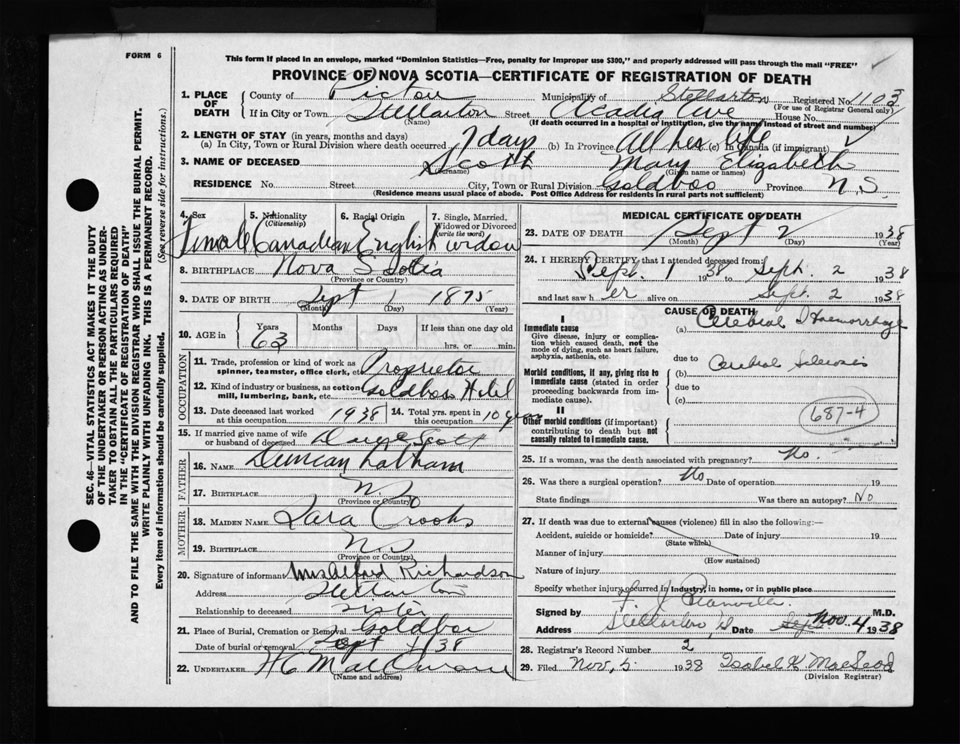 FORM 6
This form if placed in an envelope, marked "Dominion Statistics—Free, penalty for improper use $300," and properly addressed will pass through the mail "FREE"
PROVINCE OF NOVA SCOTIA—CERTIFICATE OF REGISTRATION OF DEATH
1. PLACE OF DEATH County of Pictou Municipality of Stellarton Registered No. 1103
(For use of Registrar General only)
If in City or Town Stellarton Street Acadia Ave House No.
(Name) (If death occurred in a hospital or institution, give the name instead of street and number)
2. LENGTH OF STAY (in years, months and days)
(a) In City, Town or Rural Division where death occurred 7 days (b) In Province All her life (c) In Canada (if immigrant)
3. NAME OF DECEASED Scott Mary Elizabeth
(Surname) (Given name or names)
RESIDENCE No. Street City, Town or Rural Division Goldboro Province N.S
(Residence means usual place of abode. Post Office Address for residents in rural parts not sufficient)
SEC. 46—VITAL STATISTICS ACT MAKES IT THE DUTY
OF THE UNDERTAKER OR PERSON ACTING AS UNDER-
TAKER TO OBTAIN ALL THE PARTICULARS REQUIRED
IN THE "CERTIFICATE OF REGISTRATION OF DEATH"
AND TO FILE THE SAME WITH THE DIVISION REGISTRAR WHO SHALL ISSUE THE BURIAL PERMIT.
WRITE PLAINLY WITH UNFADING INK. THIS IS A PERMANENT RECORD.
Every item of information should be carefully supplied. (See reverse side for instructions.)
4. Sex 5. Nationality (Citizenship) 6. Racial Origin 7. Single, Married, Widowed or Divorced (write the word)
Female Canadian English widow
8. BIRTHPLACE Nova Scotia
(Province or Country)
9. DATE OF BIRTH Sept 1 1875
(Month) (Day) (Year)
10. AGE in Years Months Days If less than one day old
63 hrs. or min.
OCCUPATION
11. Trade, profession or kind of work as spinner, teamster, office clerk, etc. Proprietor
12. Kind of industry or business, as cotton mill, lumbering, bank, etc. Goldboro Hotel
13. Date deceased last worked at this occupation 1938 14. Total yrs. spent in this occupation 10 years
15. If married give name of wife or husband of deceased Scott
FATHER
16. NAME Duncan Latham
17. BIRTHPLACE N.S
(Province or Country)
MOTHER
18. MAIDEN NAME Sara Crooks
19. BIRTHPLACE N.S
(Province or Country)
20. Signature of informant Richardson
Address Stellarton
Relationship to deceased sister
21. Place of Burial, Cremation or Removal Goldboro
Date of burial or removal Sept 4/38
22. UNDERTAKER H C
(Name and address)
MEDICAL CERTIFICATE OF DEATH
23. DATE OF DEATH Sept 2 1938
(Month) (Day) (Year)
24. I HEREBY CERTIFY that I attended deceased from:
Sept. 1 1938 to Sept. 2 1938
and last saw her alive on Sept. 2 1938
CAUSE OF DEATH
I
Immediate cause (a) Cerebral Haemorrhage
Give disease, injury or complication which caused death, not the mode of dying, such as heart failure, asphyxia, asthenia, etc.
due to
Morbid conditions, if any, giving rise to immediate cause (stated in order proceeding backwards from immediate cause). (b) Cerebral Sclerosis
due to
(c)
687-4
II
Other morbid conditions (if important) contributing to death but not causally related to immediate cause.
25. If a woman, was the death associated with pregnancy? No.
26. Was there a surgical operation? No Date of operation 19
State findings Was there an autopsy? No
27. If death was due to external causes (violence) fill in also the following:—
Accident, suicide or homicide? Date of injury 19
(State which)
Manner of injury
(How sustained)
Nature of injury
Specify whether injury occurred in industry, in home, or in public place
Signed by F. J. Granville M.D.
Address Stellarton Date Nov. 4 1938
28. Registrar's Record Number 2
29. Filed Nov, 5. 1938 Isabel K MacLeod
(Division Registrar)